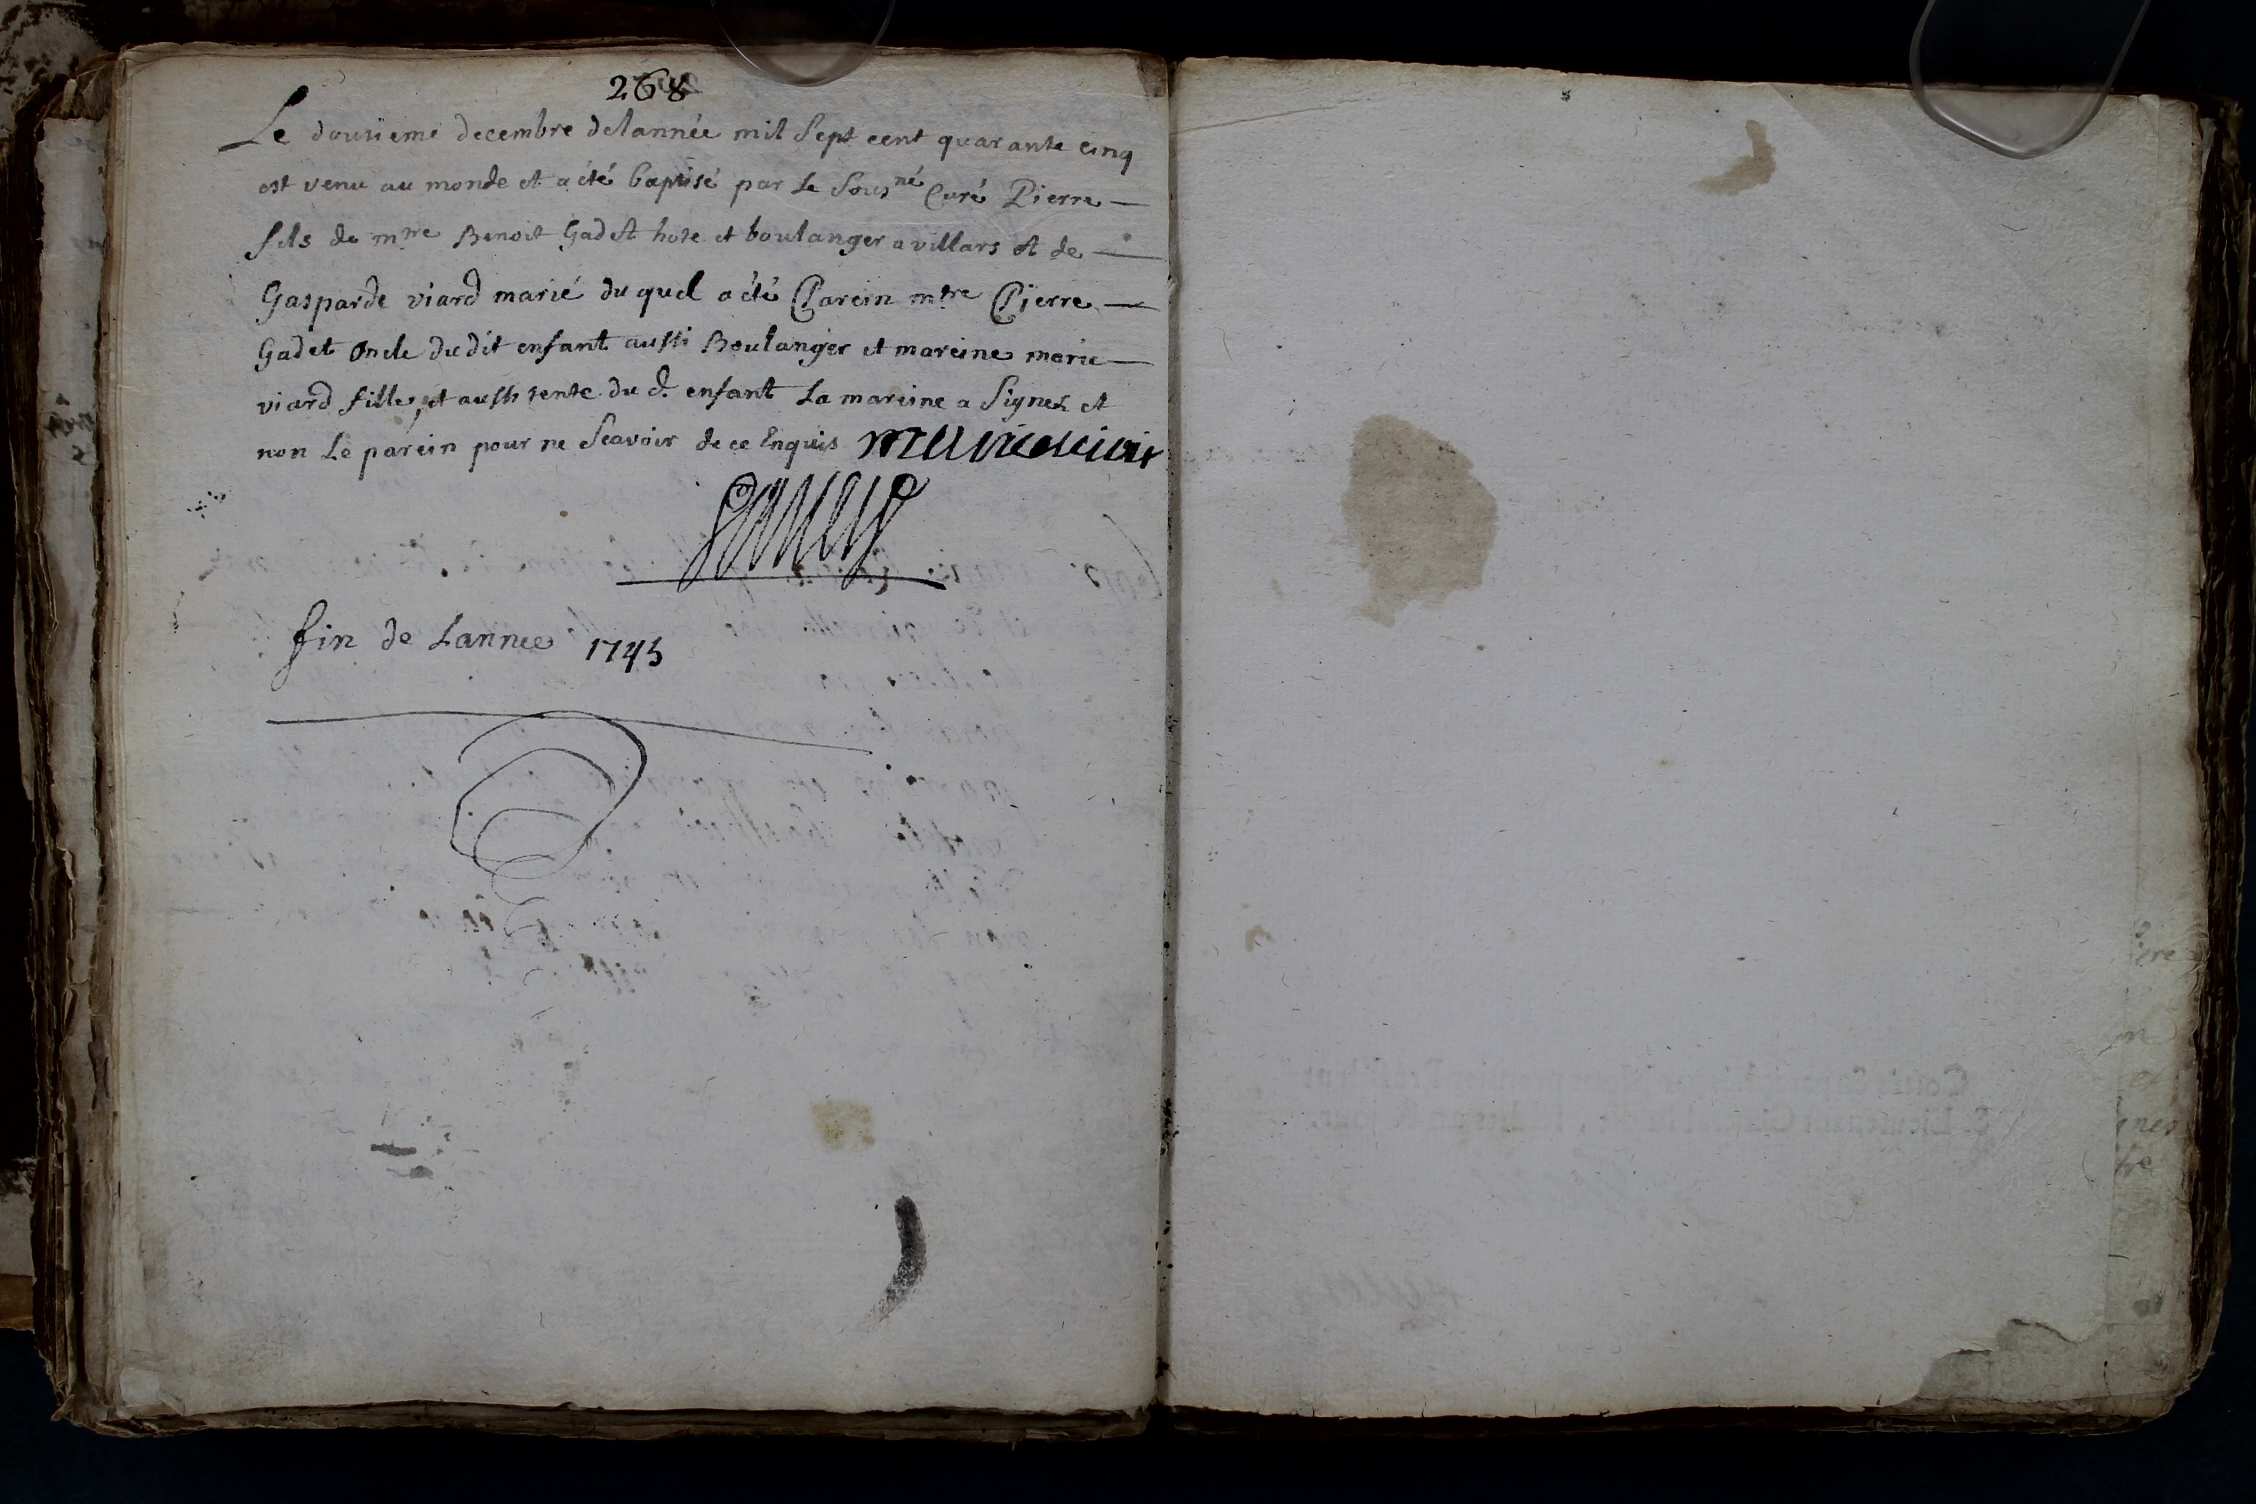 268
Le dousieme decembre delannée mil Sept cent quarante cinq
est venu au monde et a été baptisé par le Sousné Curé Pierre —
fils de mtre Benoit Gadet hote et boulanger a villars et de —
Gasparde viard marié du quel a été Parein mtre Pierre —
Gadet Oncle du dit enfant aussi Boulanger et mareine marie —
viard fille, et aussi tente du d. enfant La mareine a Signez et
non Le parein pour ne Scavoir de ce Enquis
fin de Lannee 1745